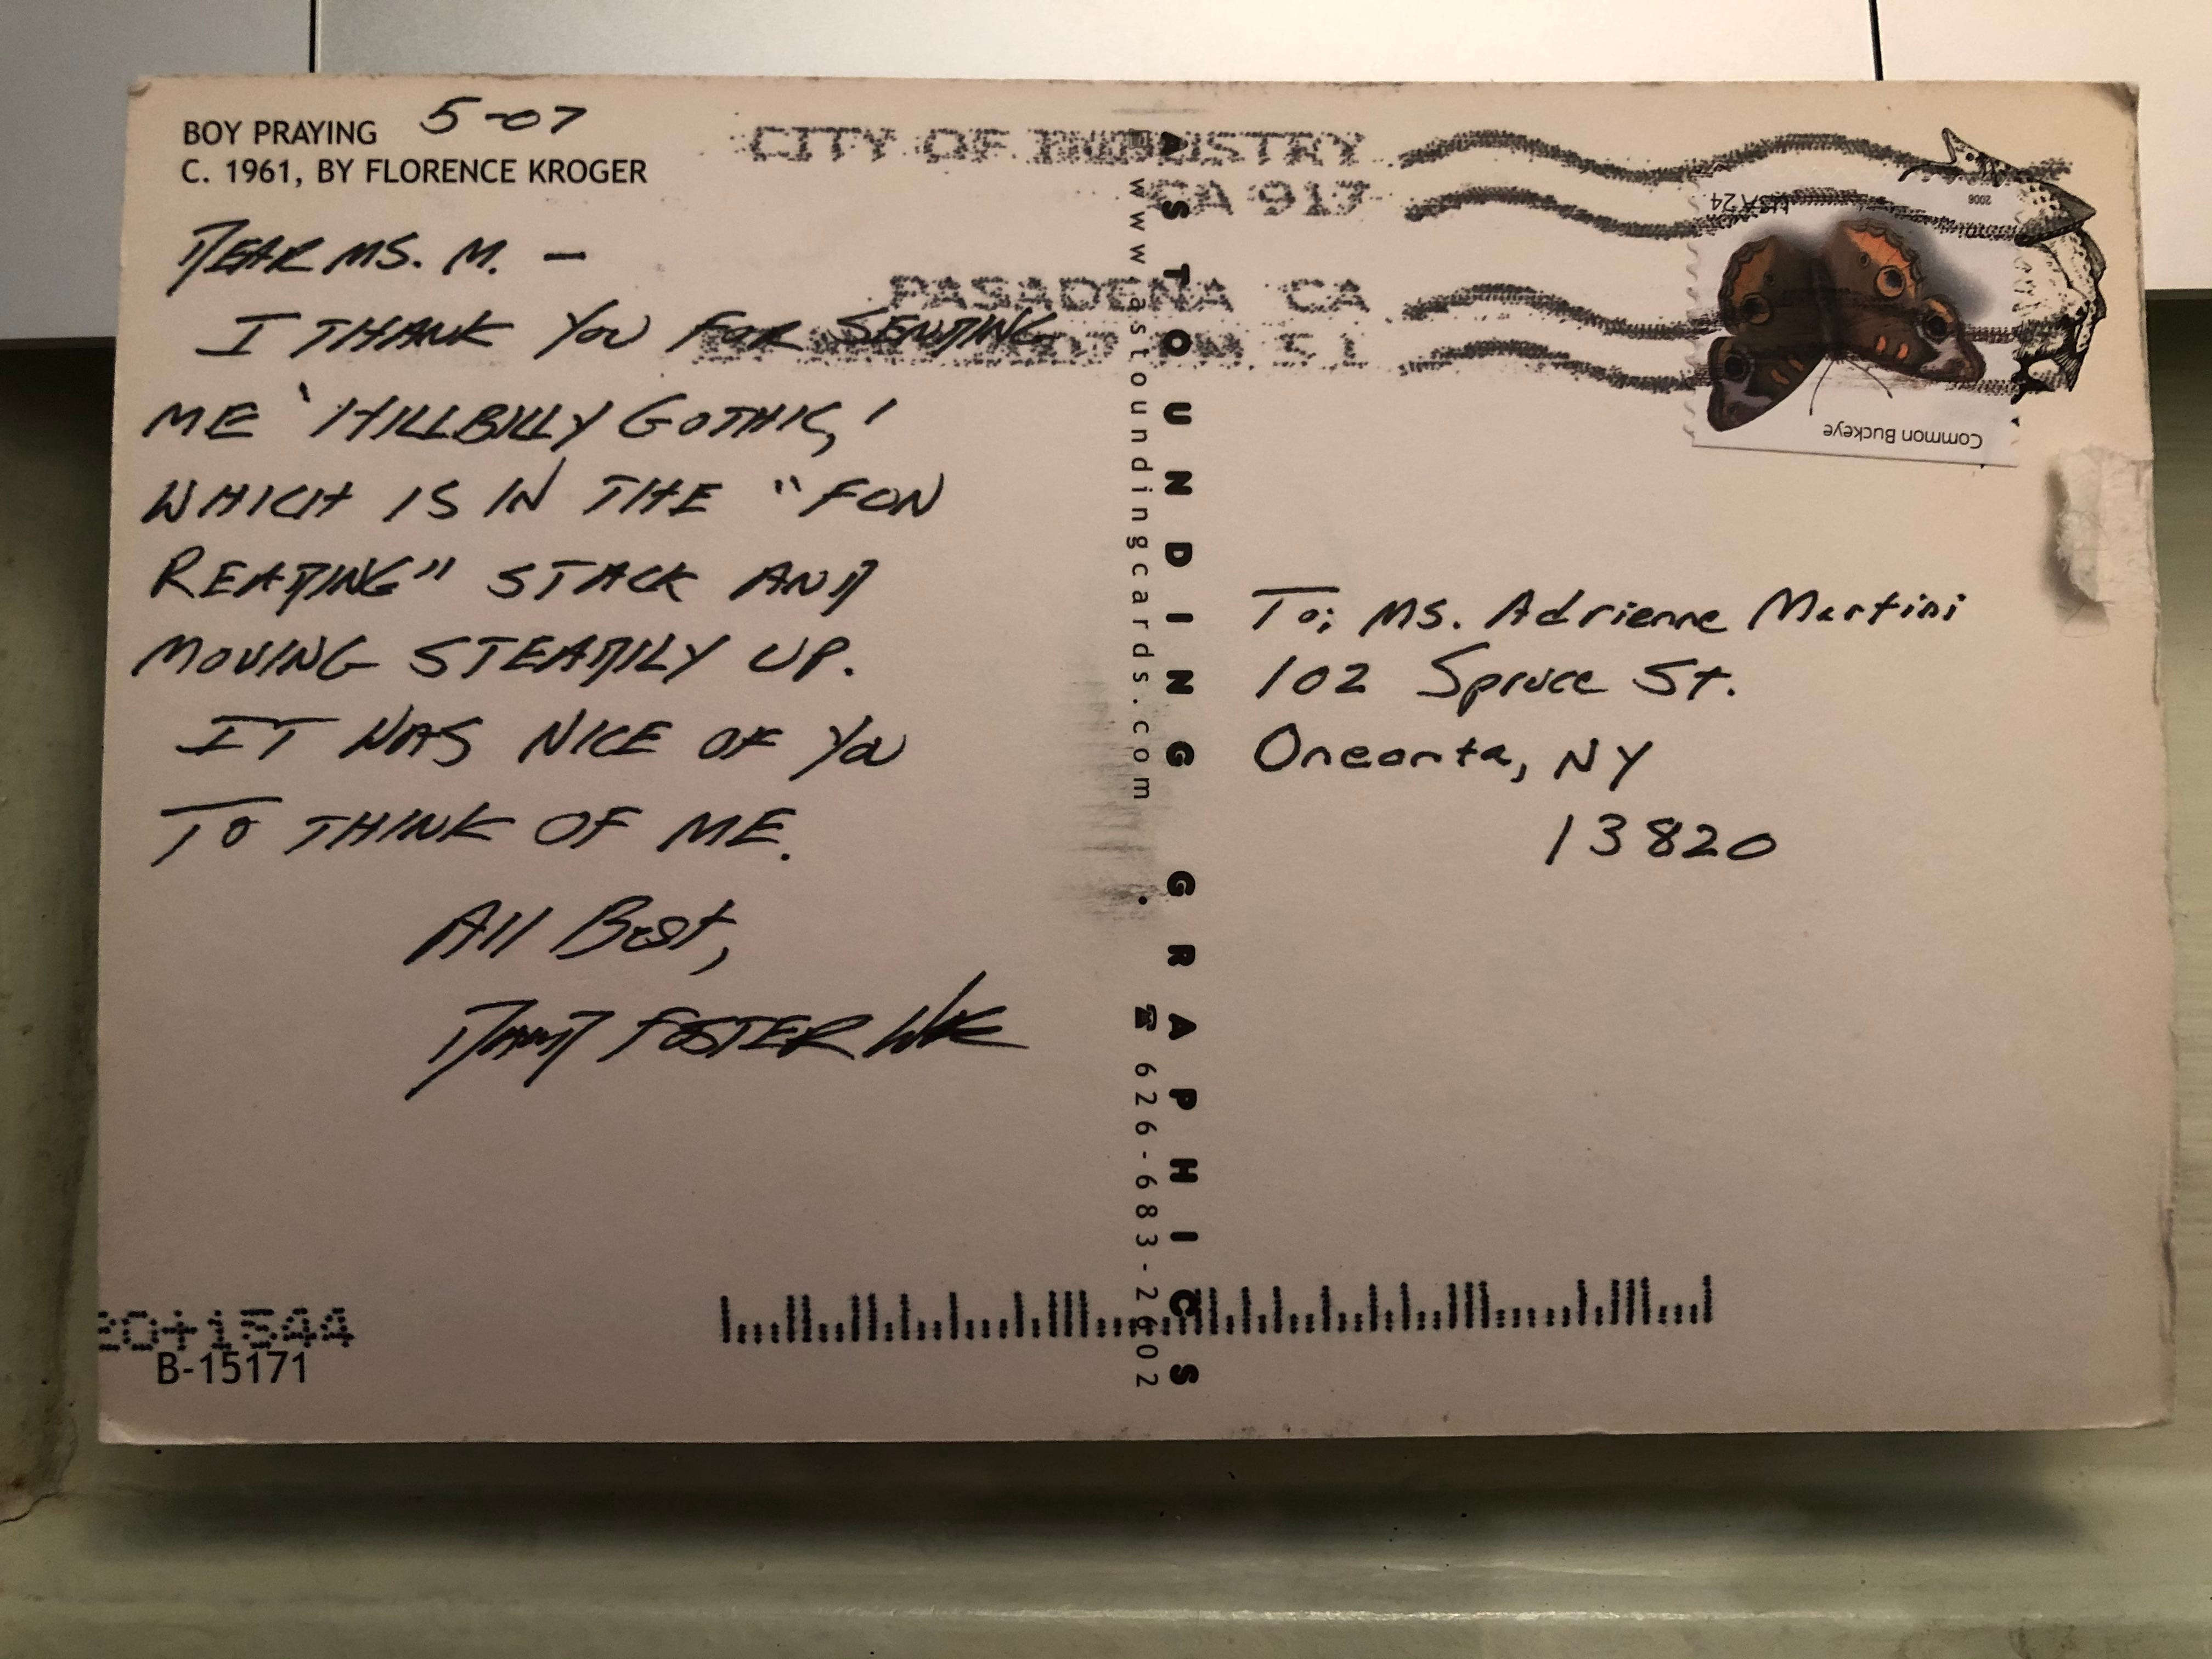 BOY PRAYING 5-07
C. 1961, BY FLORENCE KROGER
DEAR MS. M. –
I THANK YOU FOR SENDING
ME 'HILLBILLY GOTHIC,'
WHICH IS IN THE "FON
READING" STACK AND
MOVING STEADILY UP.
IT WAS NICE OF YOU
TO THINK OF ME.
All Best,
DAVID FOSTER
20+1544
B-15171
CITY OF INDUSTRY
CA 917
PASADENA CA
ASTOUNDING GRAPHICS
www.astoundingcards.com • ☎ 626-683-2602
USA 24
2006
Common Buckeye
To: Ms. Adrienne Martini
102 Spruce St.
Oneonta, NY
13820